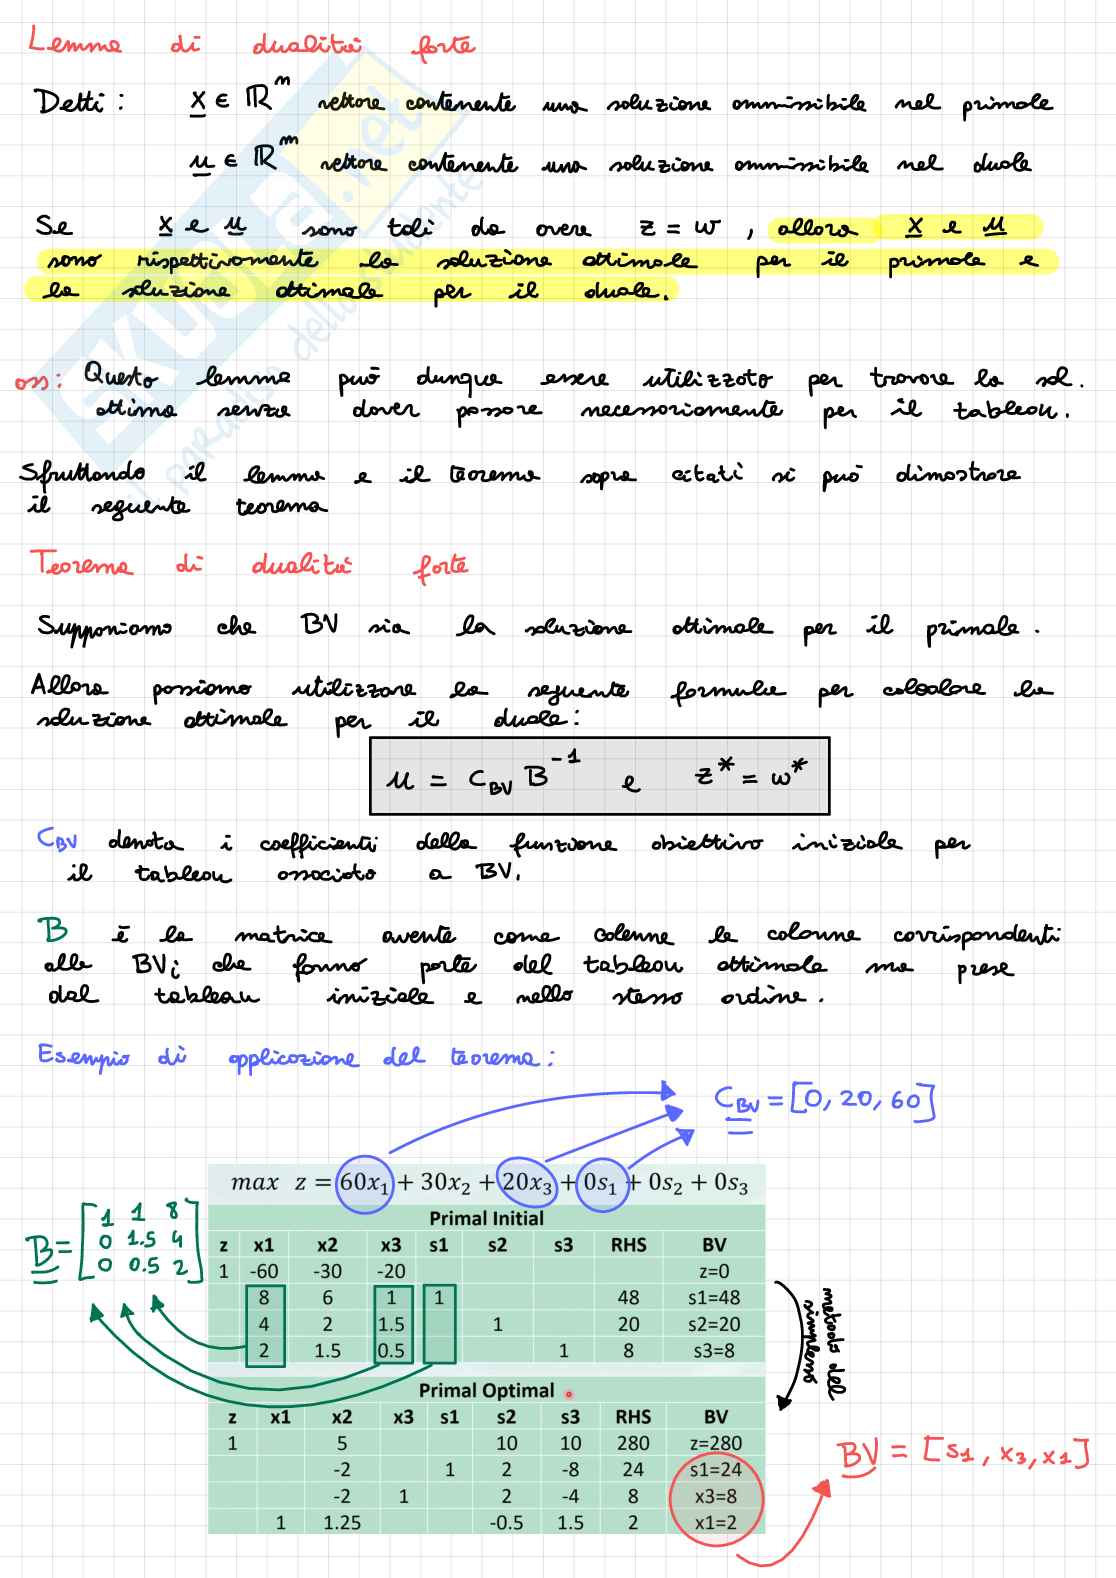 Lemma di dualità forte
Detti : x ∈ ℝⁿ vettore contenente una soluzione ammissibile nel primale
u ∈ ℝᵐ vettore contenente una soluzione ammissibile nel duale
Se x e u sono tali da avere z = w , allora x e u
sono rispettivamente la soluzione ottimale per il primale e
la soluzione ottimale per il duale.
oss: Questo lemma può dunque essere utilizzato per trovare la sol.
ottima senza dover passare necessariamente per il tableau.
Sfruttando il lemma e il teorema sopra citati si può dimostrare
il seguente teorema
Teorema di dualità forte
Supponiamo che BV sia la soluzione ottimale per il primale.
Allora possiamo utilizzare la seguente formula per calcolare la
soluzione ottimale per il duale:
u = C_BV B⁻¹ e z* = w*
C_BV denota i coefficienti della funzione obiettivo iniziale per
il tableau associato a BV.
B è la matrice avente come colonne le colonne corrispondenti
alle BVi che fanno parte del tableau ottimale ma prese
dal tableau iniziale e nello stesso ordine.
Esempio di applicazione del teorema:
C_BV = [0, 20, 60]
max z = 60x₁ + 30x₂ + 20x₃ + 0s₁ + 0s₂ + 0s₃
B = [1 1 8
0 1.5 4
0 0.5 2]
Primal Initial
z x1 x2 x3 s1 s2 s3 RHS BV
1 -60 -30 -20 z=0
8 6 1 1 48 s1=48
4 2 1.5 1 20 s2=20
2 1.5 0.5 1 8 s3=8
metodo del
simplesso
Primal Optimal
z x1 x2 x3 s1 s2 s3 RHS BV
1 5 10 10 280 z=280
-2 1 2 -8 24 s1=24
-2 1 2 -4 8 x3=8
1 1.25 -0.5 1.5 2 x1=2
BV = [s1, x3, x1]
SKUOLA.net
il paradiso dello studente